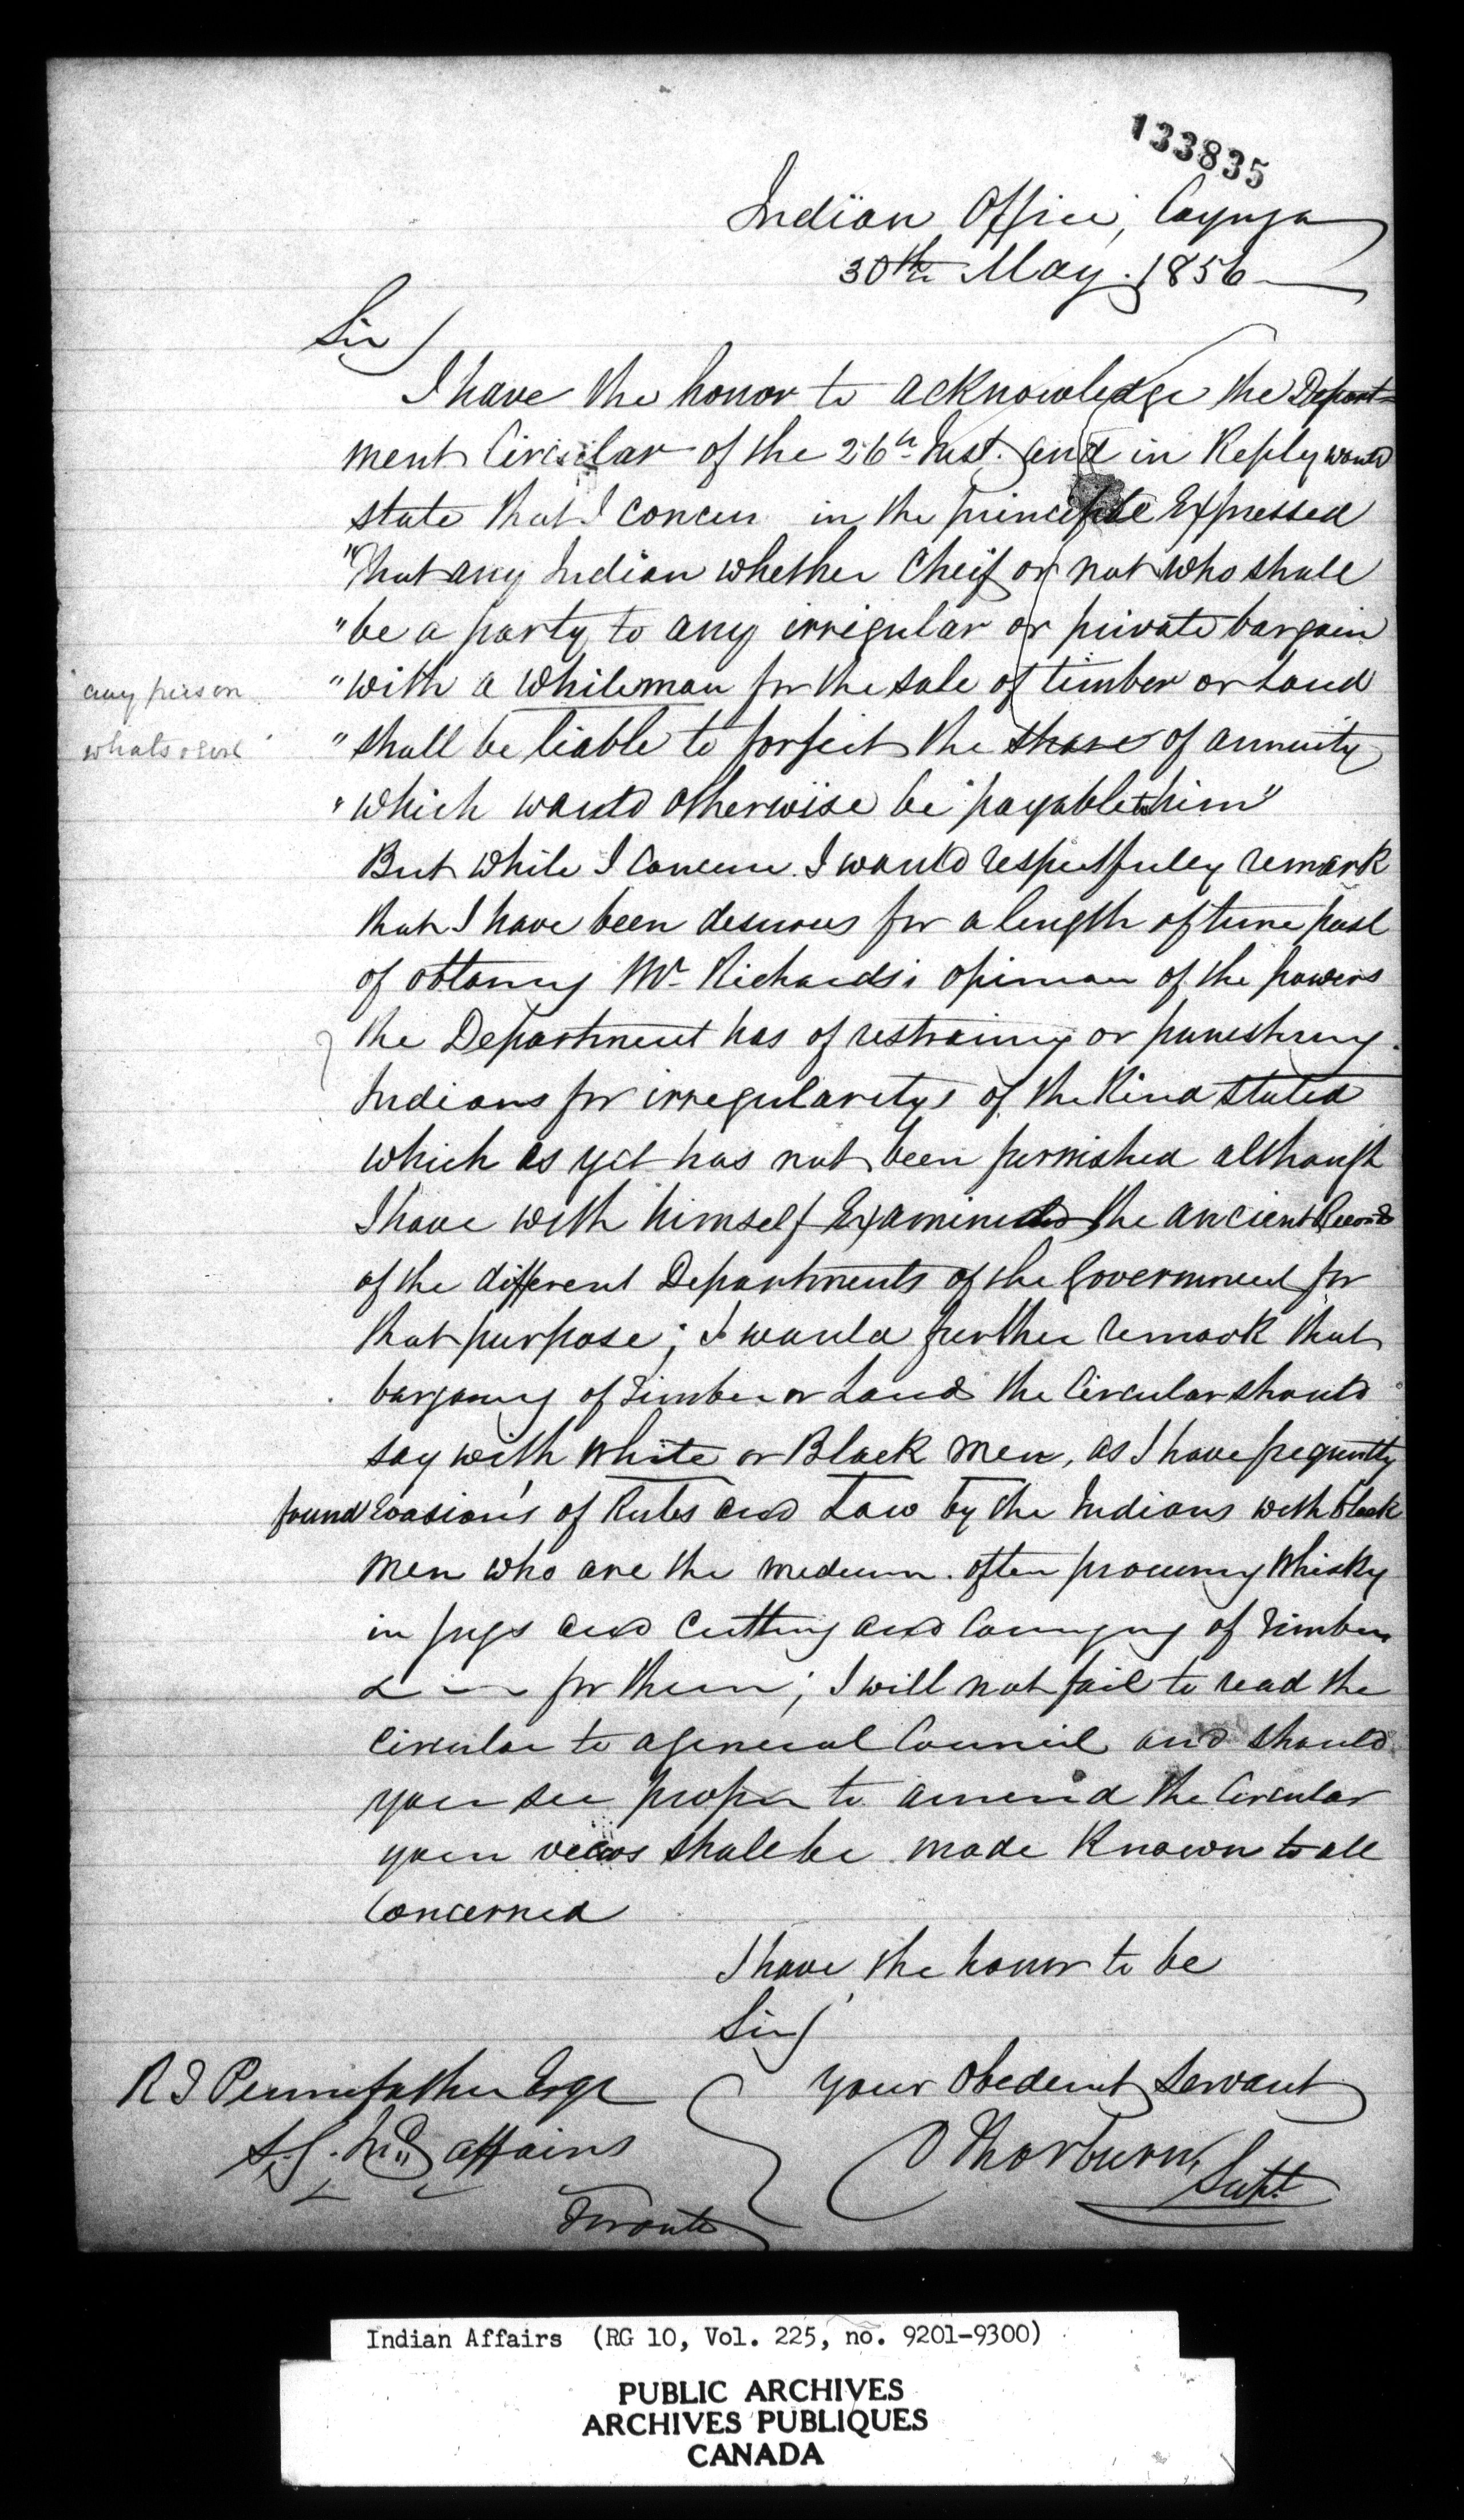 133835
Indian Office, Cayuga
30th May. 1856
Sir
I have the honor to acknowledge the Depart=
ment Circular of the 26th Inst. and in Reply would
state that I concur in the principle Expressed
"That any Indian whether Cheif or not who shall
"be a party to any irregular or private bargain
"with a whiteman for the sale of timber or Land
any person
whatsoever
"shall be liable to forfeit the share of annuity
"which would otherwise be payable to him"
But while I concur I would respectfully remark
that I have been desirous for a length of time past
of obtaing Mr Richards's opinion of the powers
the Department has of restraing or punishing
Indians for irregularitys of the Kind stated
which as yet has not been furnished although
I have with himself Examined the ancient Records
of the different Departments of the Government for
that purpose; I would further remark that
bargaing of Timber or Land the Circular should
say with White or Black men, as I have frequntly
found Evasion's of Rules and Law by the Indians with black
men who are the medium often procuring Whisky
in jugs and Cutting and Carrying of Timber
for them; I will not fail to read the
Circular to a general Council and should
you see proper to amend the Circular
your views shall be made Known to all
Concerned
I have the honor to be
Sir
your Obedient Servant
D Thorburn Supt
R T Pennefather Esqr
S. G. Ind affairs
Toronto
Indian Affairs (RG 10, Vol. 225, no. 9201-9300)
PUBLIC ARCHIVES
ARCHIVES PUBLIQUES
CANADA